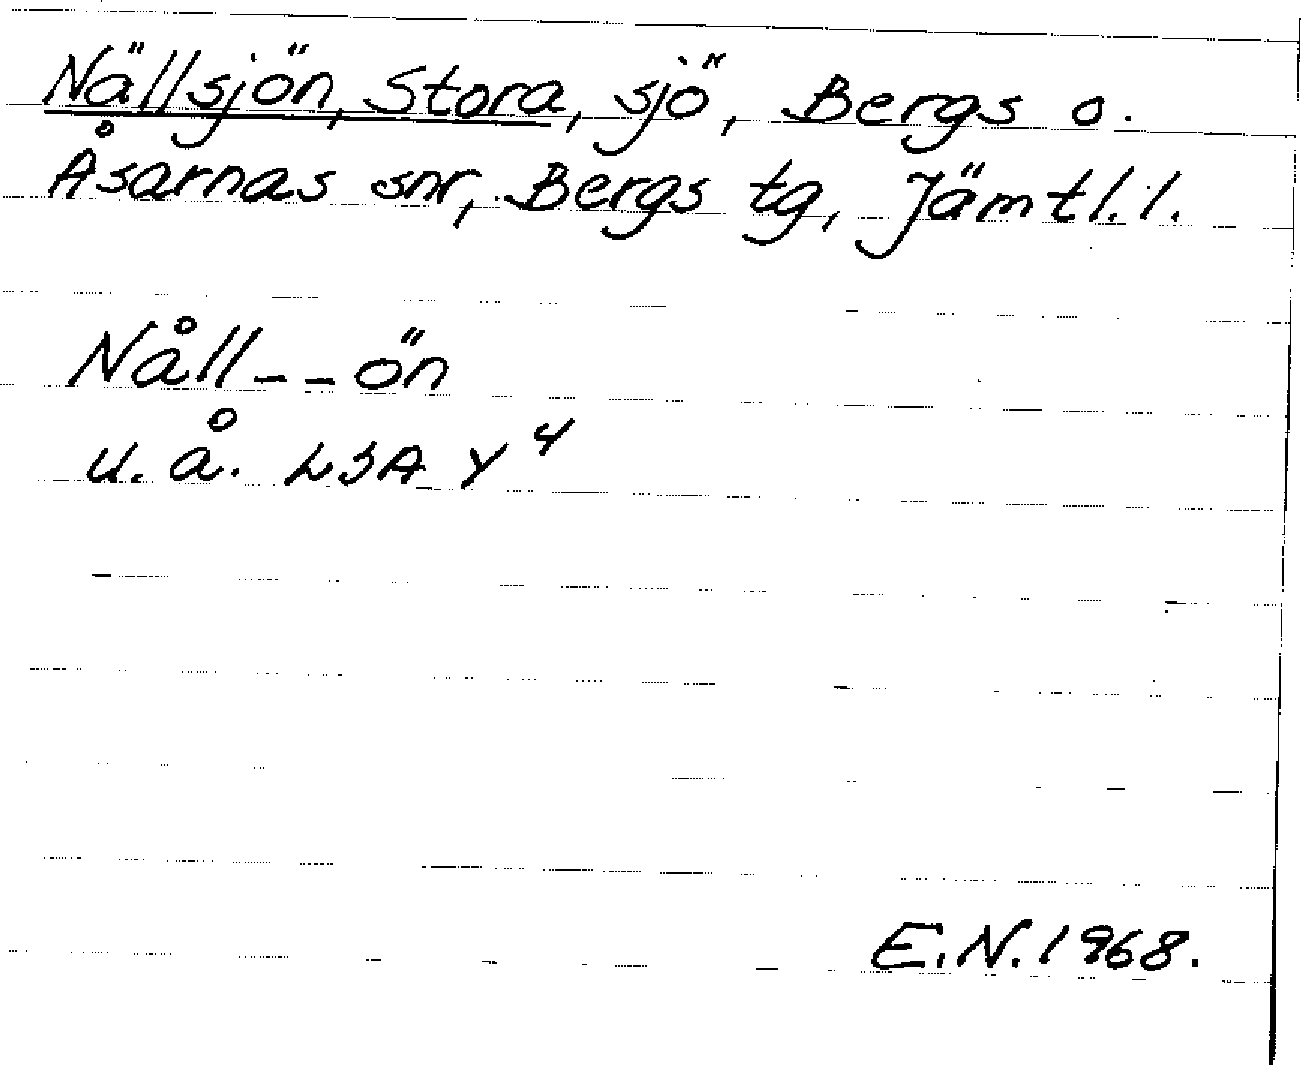 Nällsjön, Stora, sjö, Bergs o.
Åsarnas snr, Bergs tg, Jämtl. l.
Nåll--ön
u.å. LSA Y 4
E.N. 1968.